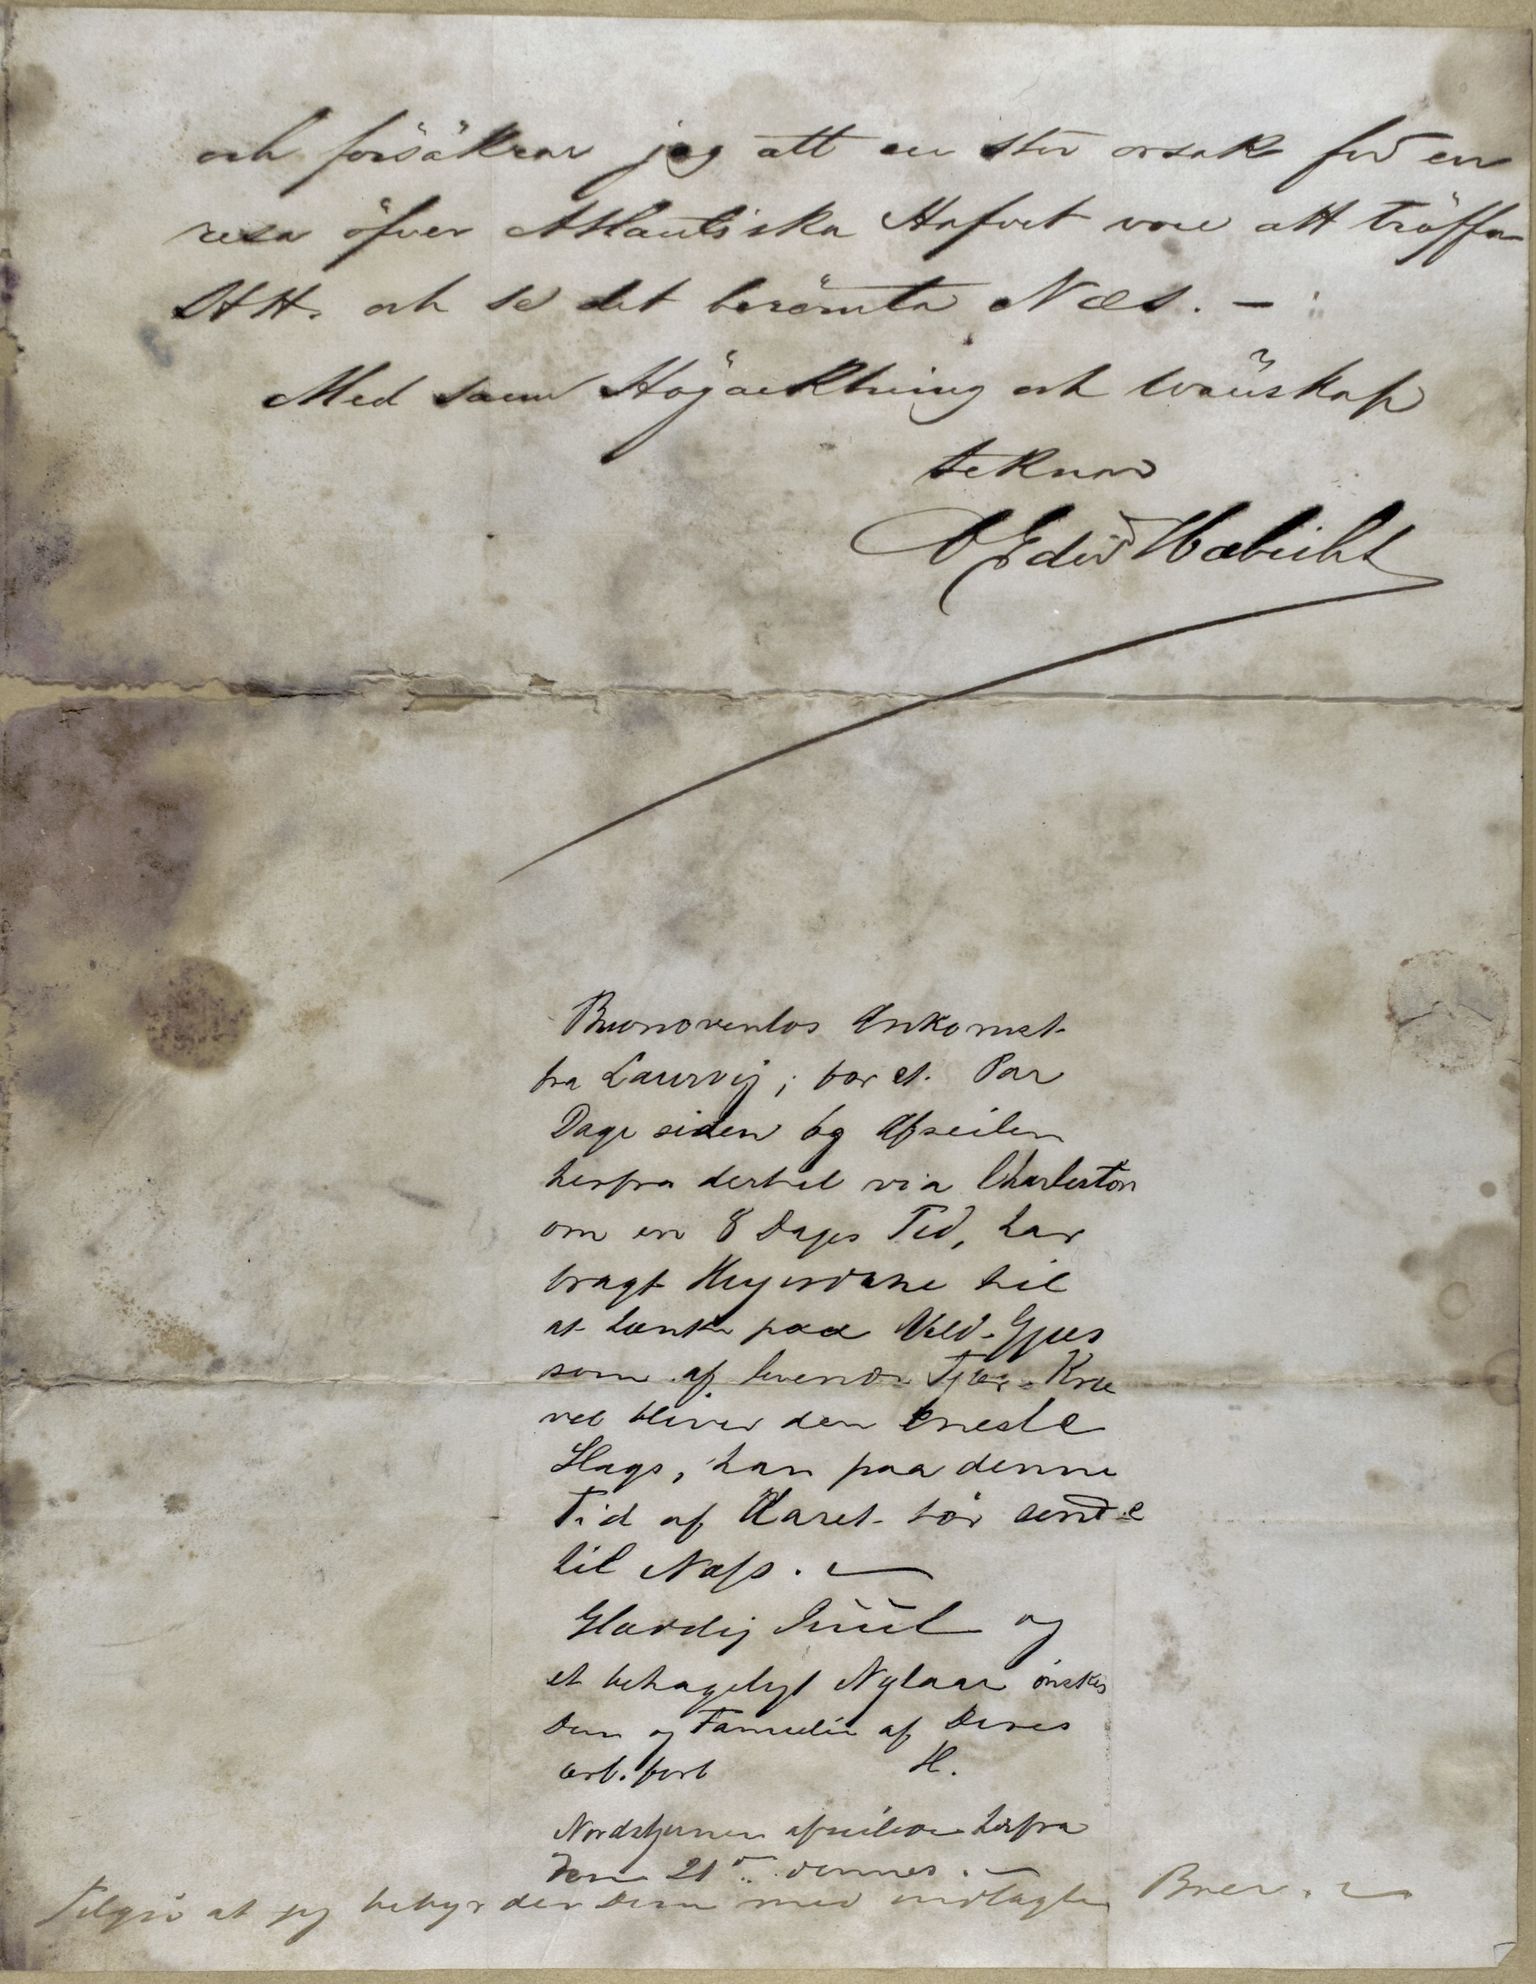 och försäkrar jag att en stor orsak för en
resa öfver Atlantiska Hafvet vore att träffa
HH. och se det berömta Næs. —
Med sann Högacktning och wänskap
teknar
C Edvd Habicht
Buonaventas Ankomst
fra Laurvig; for et Par
Dage siden og Afseilen
herfra dertil via Charleston
om en 8 Dages Tid, har
bragt Heyerdahl til
at tænke paa Vild-Gjæs
som af levende Fjær-Kræ
vel bliver den eneste
Slags, han paa denne
Tid af Aaret tør sende
til Næss. —
Glædelig Juul og
et behageligt Nytaar ønskes
Dem og Familie af Deres
erb. forb H.
Nordstjernen afseilede herfra
den 21de dennes. —
Tilgiv at jeg bebyrder Dem med indlagte Brev. —